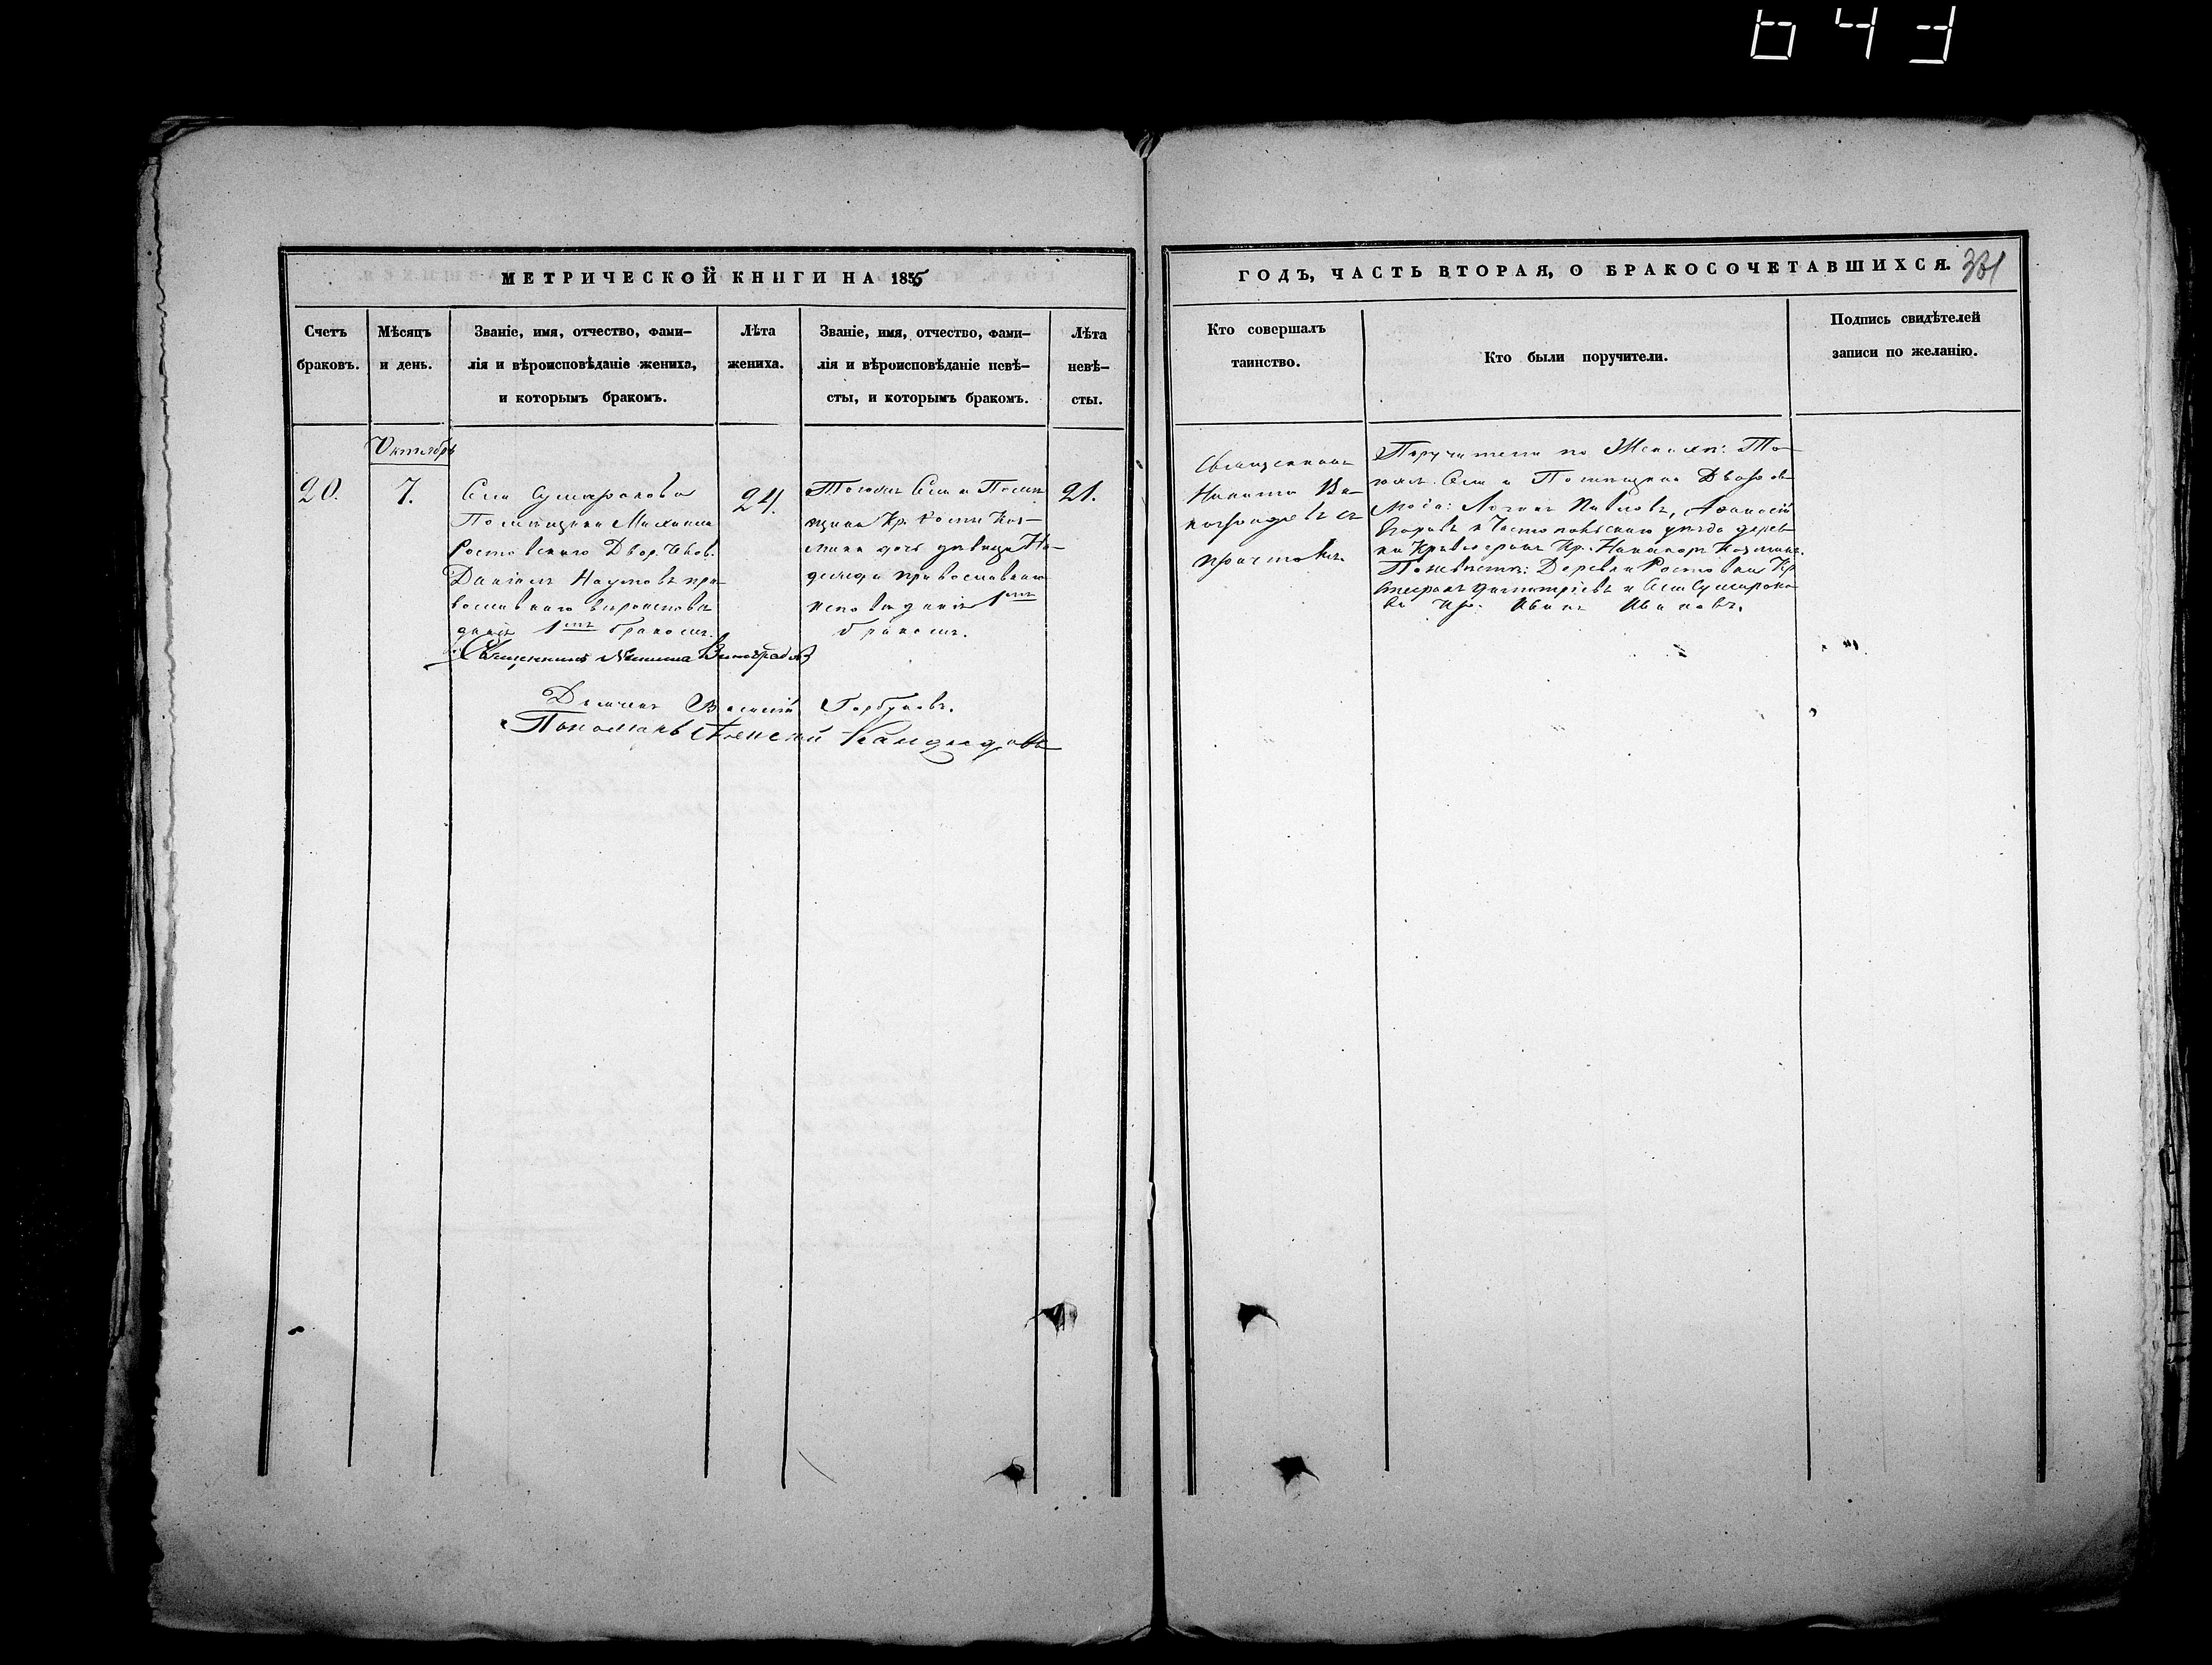 643
МЕТРИЧЕСКОЙ КНИГИ НА 1855
ГОДЪ, ЧАСТЬ ВТОРАЯ, О БРАКОСОЧЕТАВШИХСЯ.
331
Счетъ
браковъ.
Мѣсяцъ
и день.
Званіе, имя, отчество, фами-
лія и вѣроисповѣданіе жениха,
и которымъ бракомъ.
Лѣта
жениха.
Званіе, имя, отчество, фами-
лія и вѣроисповѣданіе невѣ-
сты, и которымъ бракомъ.
Лѣта
невѣ-
сты.
Кто совершалъ
таинство.
Кто были поручители.
Подпись свидѣтелей
записи по желанію.
Октябрь
20.
7.
Села Сумарокова
Помѣщика Михаила
Ростовскаго Двор. Челов.
Даніилъ Наумовъ пра-
вославнаго вѣроисповѣ-
данія 1мъ бракомъ.
24.
Тогожъ Села и Помѣ-
щика Кр. Косьмы Коз-
мина дочь дѣвица На-
дежда православнаго
исповѣданія 1мъ
бракомъ.
21.
Священникъ
Никита Ви-
ноградовъ съ
причтомъ.
Поручители по Женихѣ: То-
гожъ Села и Помѣщика Дворов.
Павловъ, Афанасій
Егоровъ и уѣзда дерев-
ни Кр. Никаноръ Козминъ.
По невѣстѣ: Деревни Кр
Димитріевъ и Села Сумароко-
ва Кр. Иванъ Ивановъ.
Священникъ Никита Виноградовъ
Діаконъ Василій Горбуновъ.
Пономарь Алексій Кандидовъ